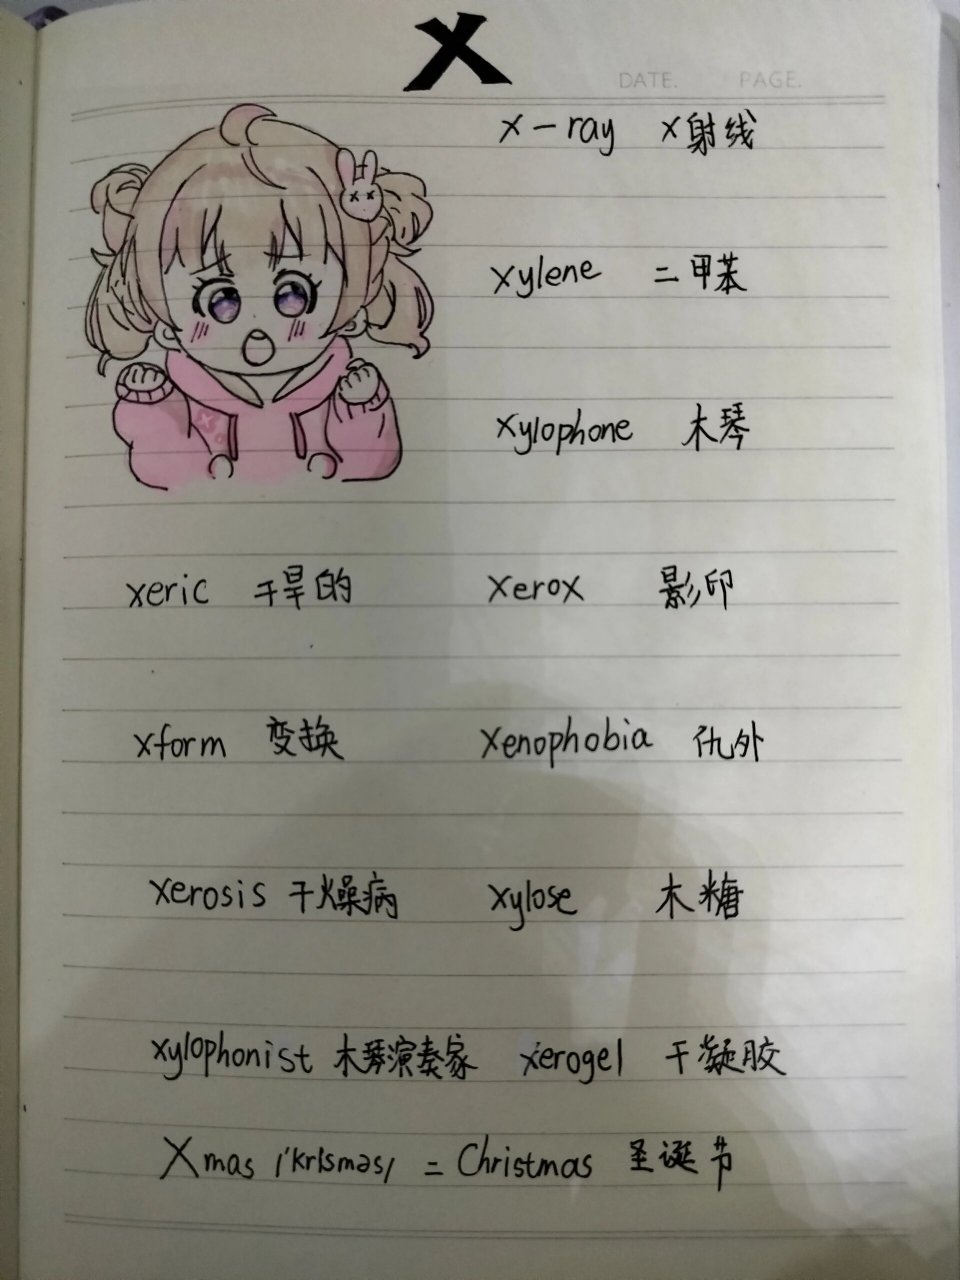 X
DATE. PAGE.
X-ray X射线
xylene 二甲苯
xylophone 木琴
xeric 干旱的 xerox 影印
xform 变换 xenophobia 仇外
xerosis 干燥病 xylose 木糖
xylophonist 木琴演奏家 xerogel 干凝胶
Xmas /'krIsməs/ = Christmas 圣诞节